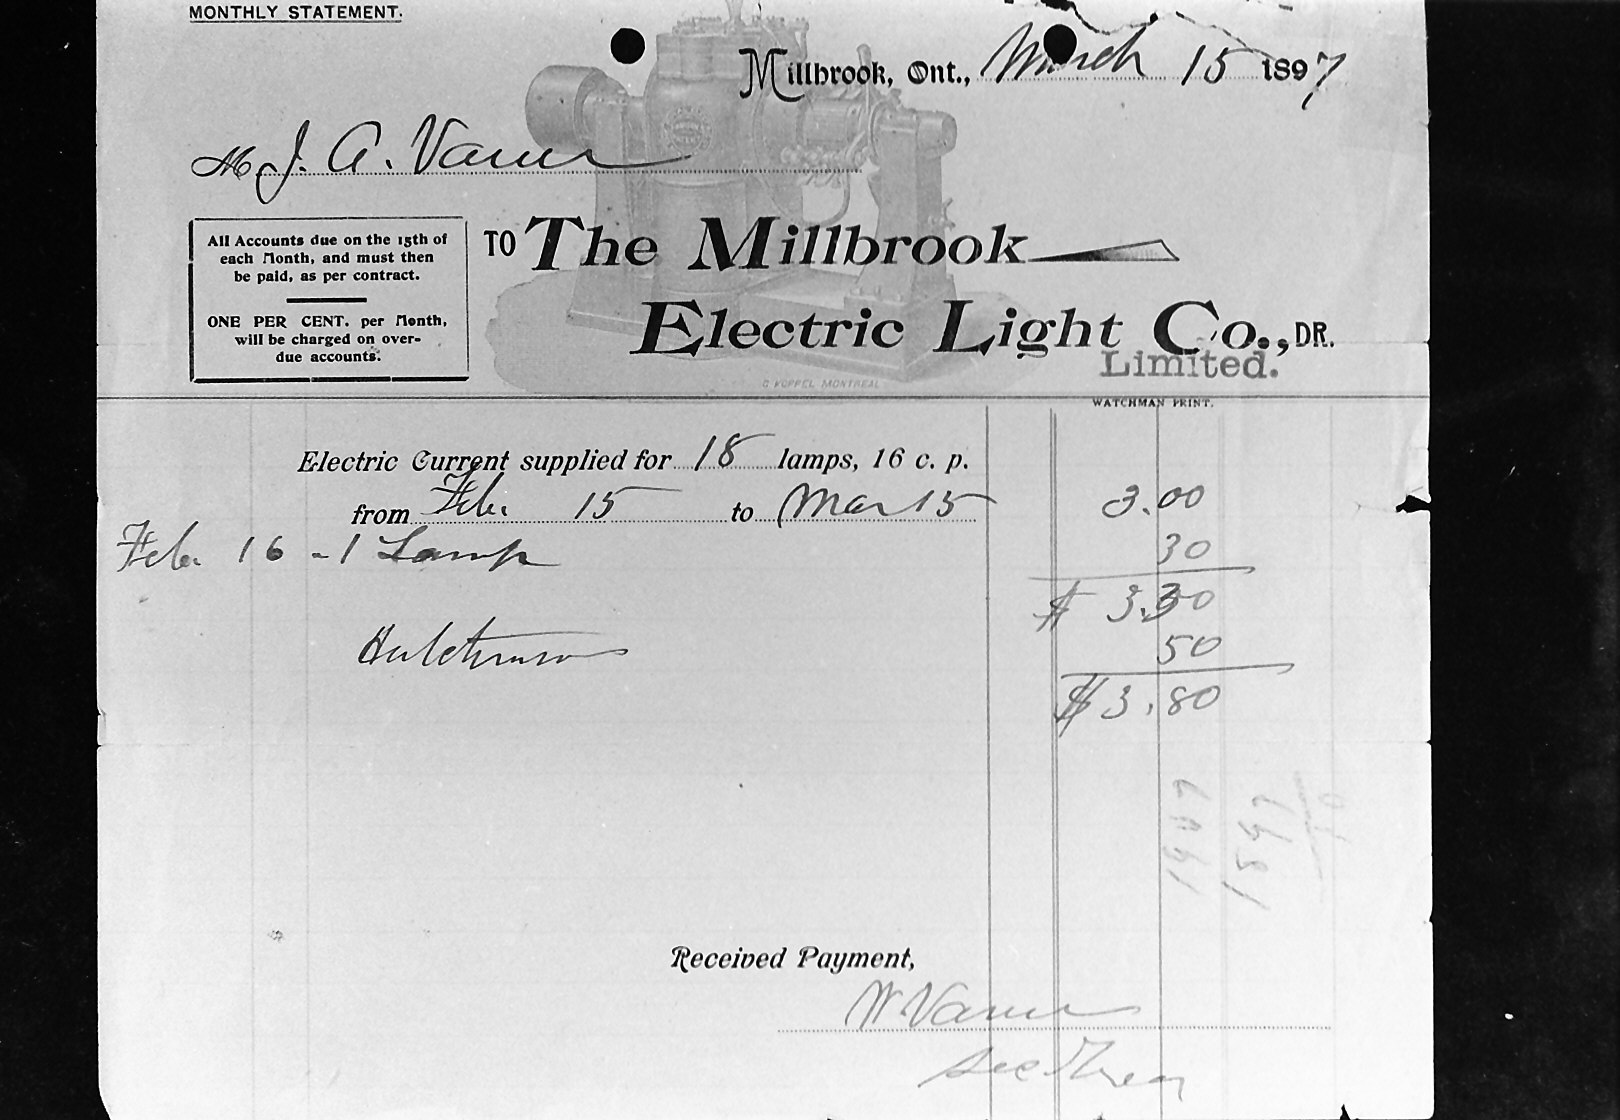 MONTHLY STATEMENT.
Millbrook, Ont., March 15 1897
M J. A. Vance
All Accounts due on the 15th of
each Month, and must then
be paid, as per contract.
ONE PER CENT. per Month,
will be charged on over-
due accounts.
TO The Millbrook
Electric Light Co., DR.
Limited.
C KOPPEL MONTREAL
WATCHMAN PRINT.
Electric Current supplied for 18 lamps, 16 c. p.
from Feb. 15 to Mar 15 3.00
Feb. 16 - 1 Lamp 30
$ 3.30
Hutchinson 50
$ 3.80
Received Payment,
W. Vance
Sec Treas